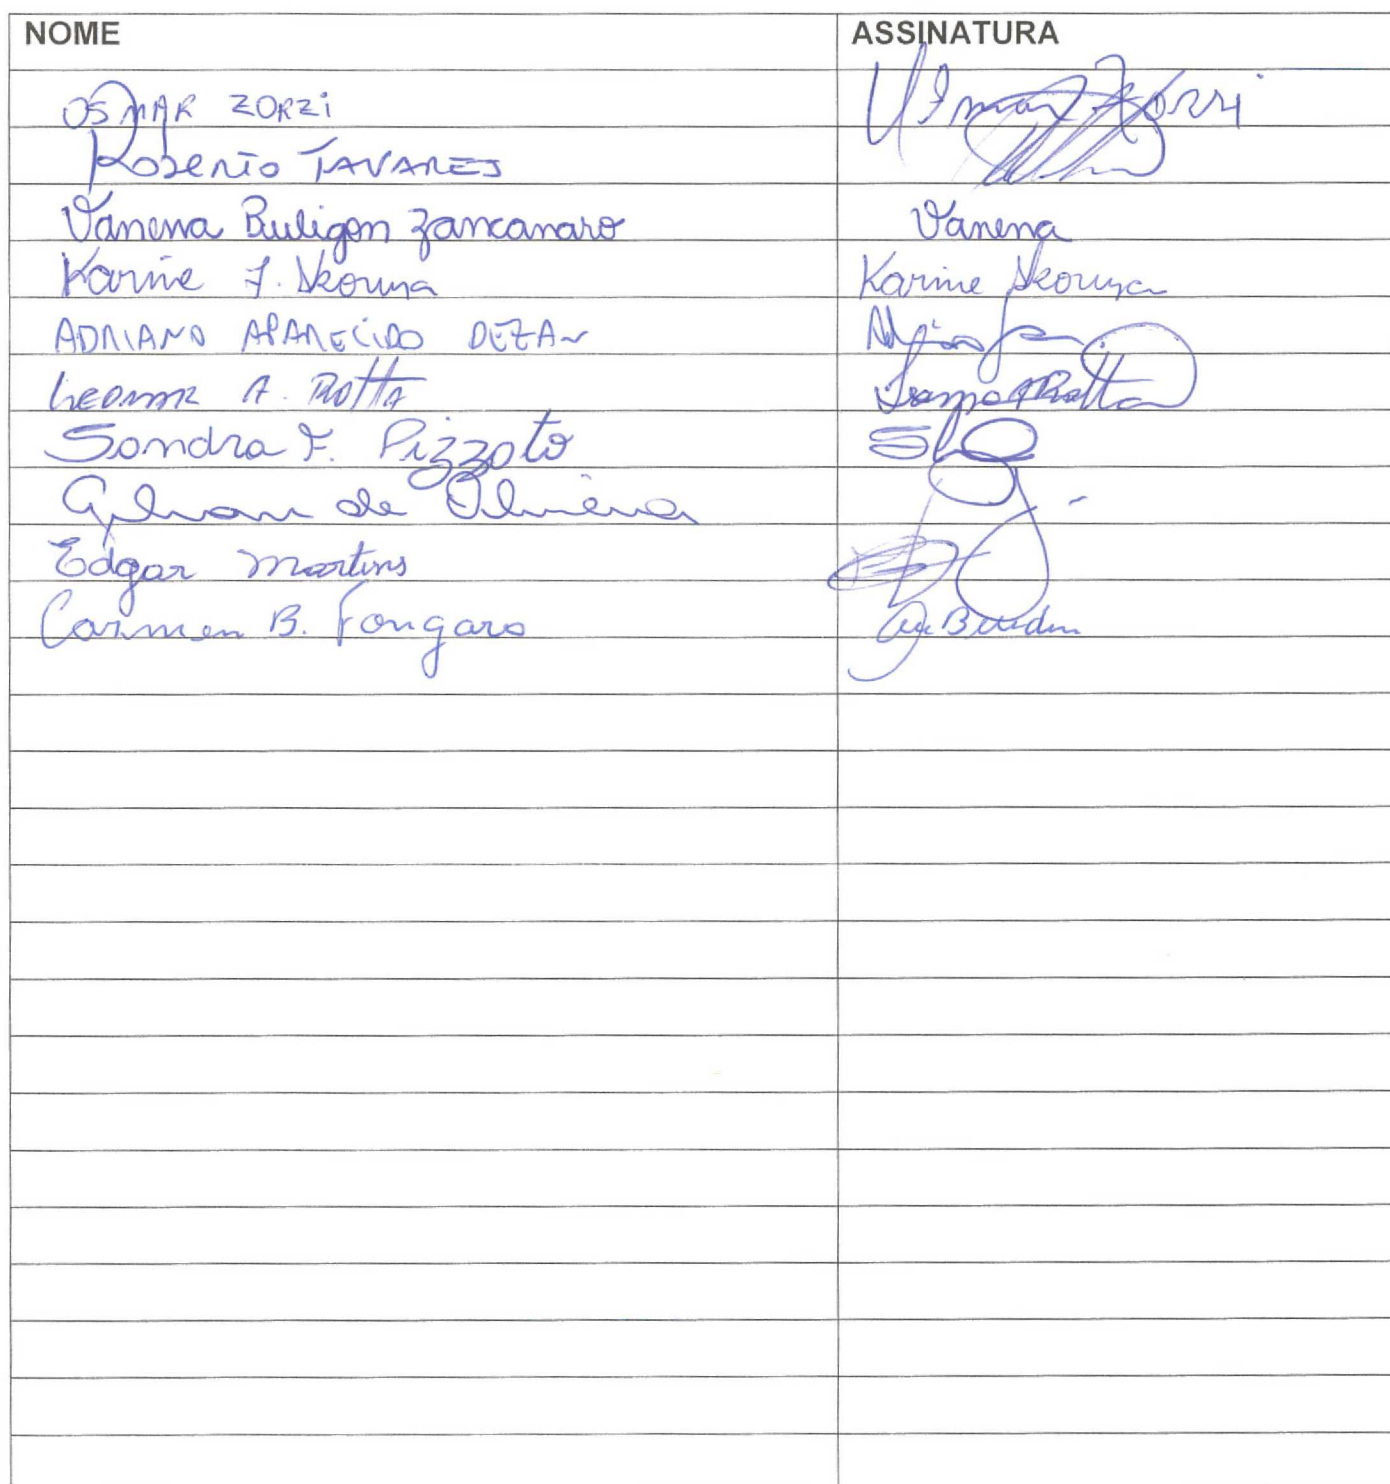 NOME ASSINATURA
OSMAR ZORZI Osmar Zorzi
Roberto TAVARES
Vanessa Buligon Zancanaro Vanessa
Karine F. Karine
ADRIANO APARECIDO DEZAN
Leomar A. Rotta Rotta
Sandra F. Pizzoto
Gilvan de Oliveira
Edgar Martins
Carmen B. Fongaro